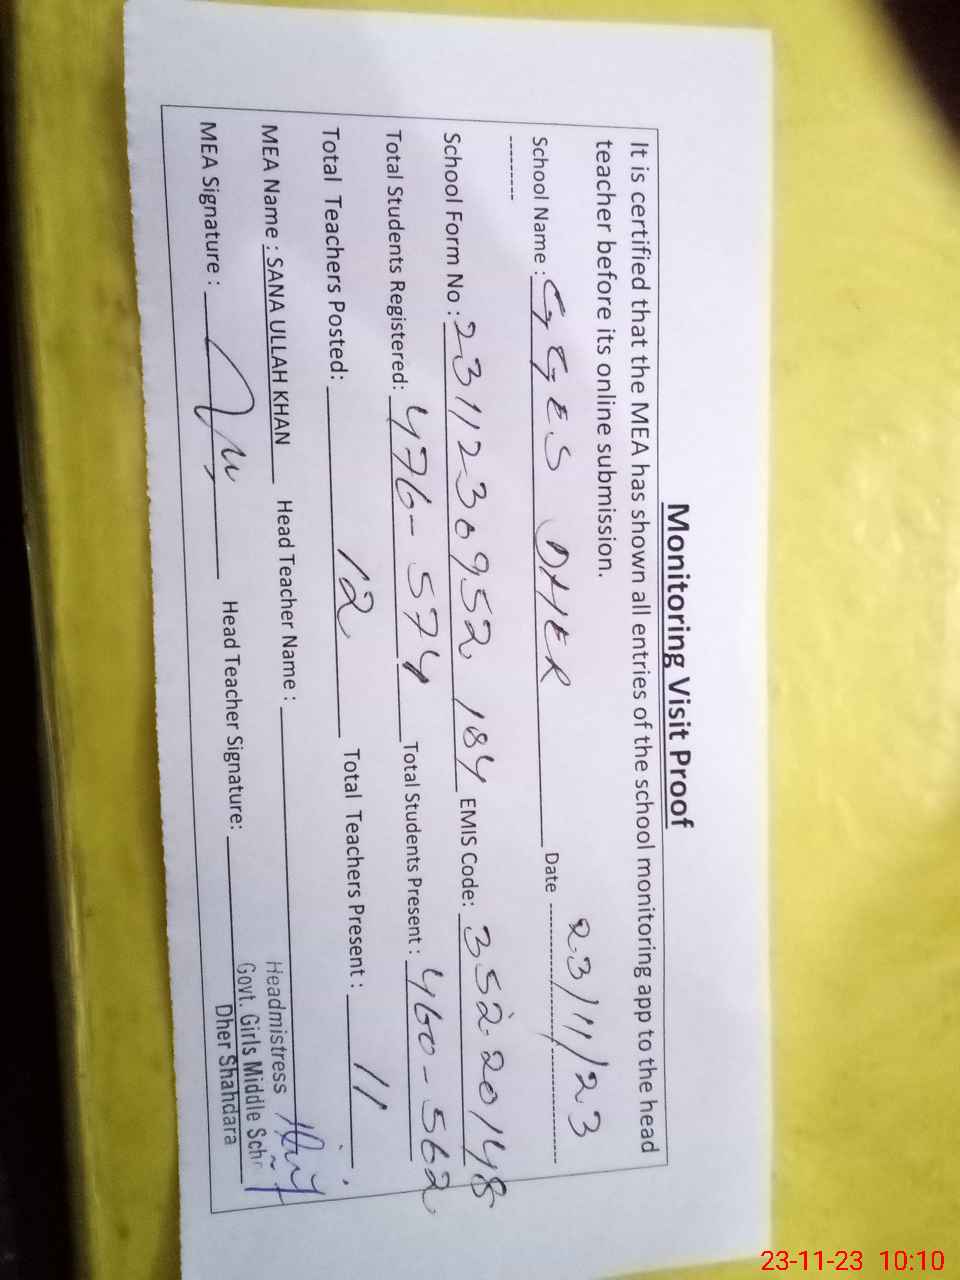 Monitoring Visit Proof
It is certified that the MEA has shown all entries of the school monitoring app to the head
teacher before its online submission.
School Name : GGES DHER Date 23/11/23
School Form No : 231123 0952 184 EMIS Code: 35220148
Total Students Registered: 476-574 Total Students Present : 460-562
Total Teachers Posted: 12 Total Teachers Present : 11
MEA Name : SANA ULLAH KHAN Head Teacher Name :
MEA Signature : Head Teacher Signature:
Headmistress
Govt. Girls Middle
Dher Shahdara
23-11-23 10:10